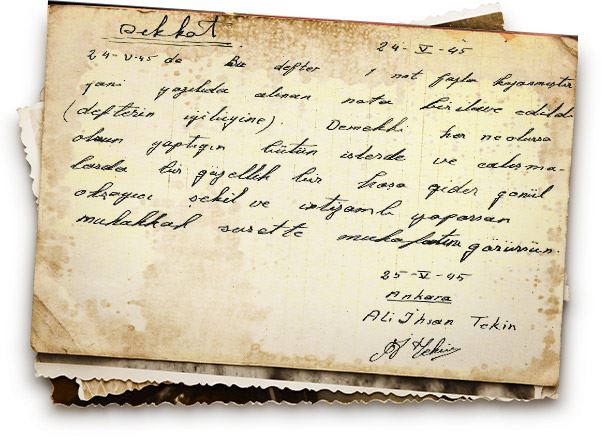 Dikkat.
24-V-45
24-V-45 de Bu defter 1 not fazla kazanmıştır
yani yazıhda alınan nota bir ilave edildi
(defterin iyiliğine). Demekki her ne olursa
olsun yaptığın bütün islerde ve calışma-
larda bir güzellik bir hosa gider gönül
oksayıcı sekil ve intizamlı yaparsan
muhakkak surette mukafatını görürsün.
25-V-45
Ankara
Ali İhsan Tekin